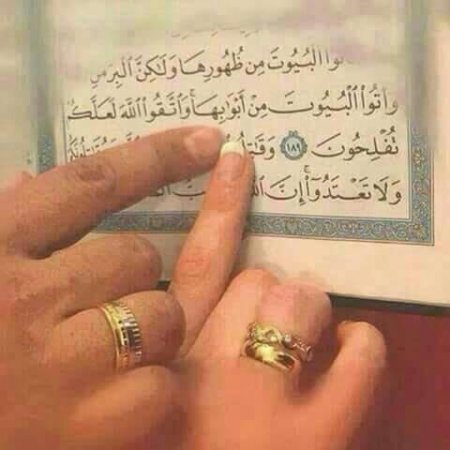 الْبُيُوتَ مِن ظُهُورِهَا وَلَٰكِنَّ الْبِرَّ مَنِ
وَأْتُوا الْبُيُوتَ مِنْ أَبْوَابِهَا ۚ وَاتَّقُوا اللَّهَ لَعَلَّكُ
تُفْلِحُونَ ١٨٩
وَلَا تَعْتَدُوا ۚ إِنَّ